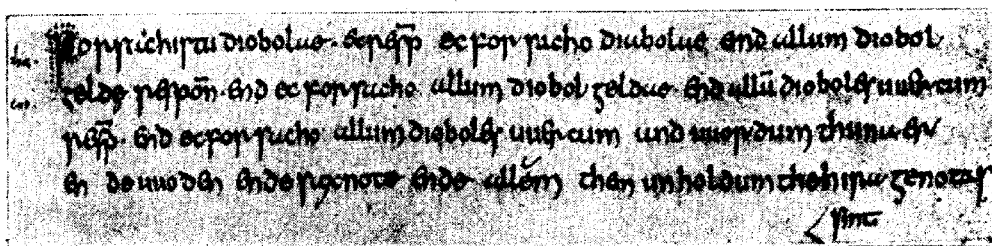 Forsachistu diobolae. & resp̄ ec forsacho diabolae end allum diobol
gelde respoñ. end ec forsacho allum diobol geldae. end allū dioboles uuercum
resp̄. end ec forsacho allum dioboles uuercum and uuordum thunaer
ende uuoden ende saxnote ende allem them unholdum the hira genotas
sint